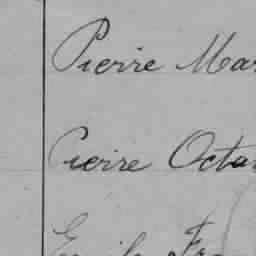 Pierre Mar
Pierre Octa
Emile Fra